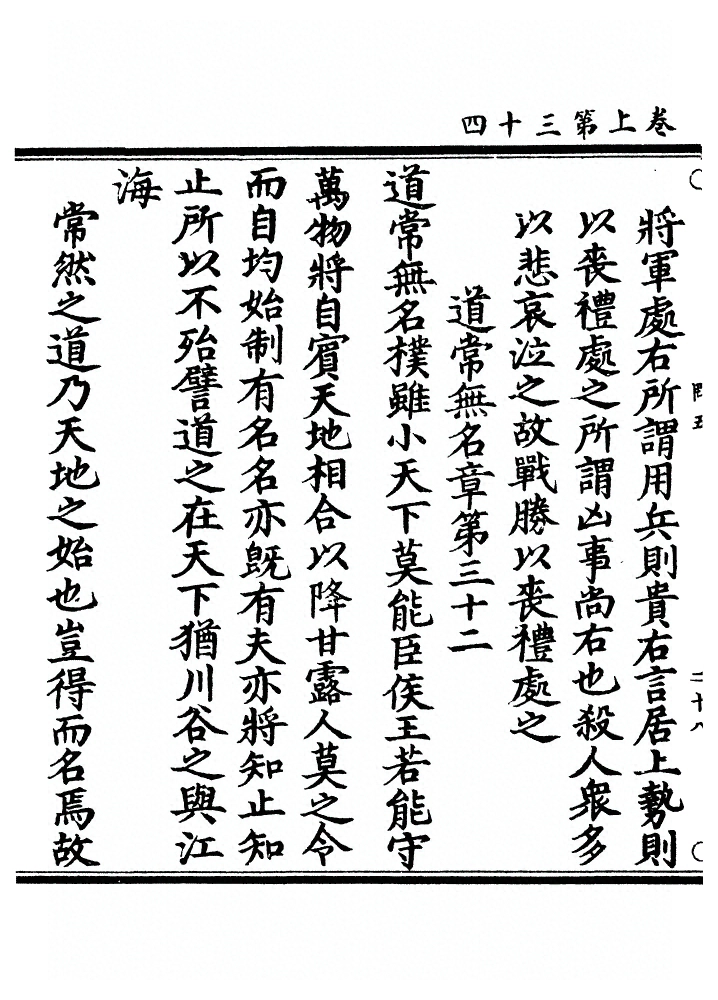 卷上第三十四
將軍處右所謂用兵則貴右言居上勢則
以喪禮處之所謂凶事尚右也殺人衆多
以悲哀泣之故戰勝以喪禮處之
道常無名章第三十二
道常無名樸雖小天下莫能臣侯王若能守
萬物將自賓天地相合以降甘露人莫之令
而自均始制有名名亦旣有夫亦將知止知
止所以不殆譬道之在天下猶川谷之與江
海
常然之道乃天地之始也豈得而名焉故
二十八